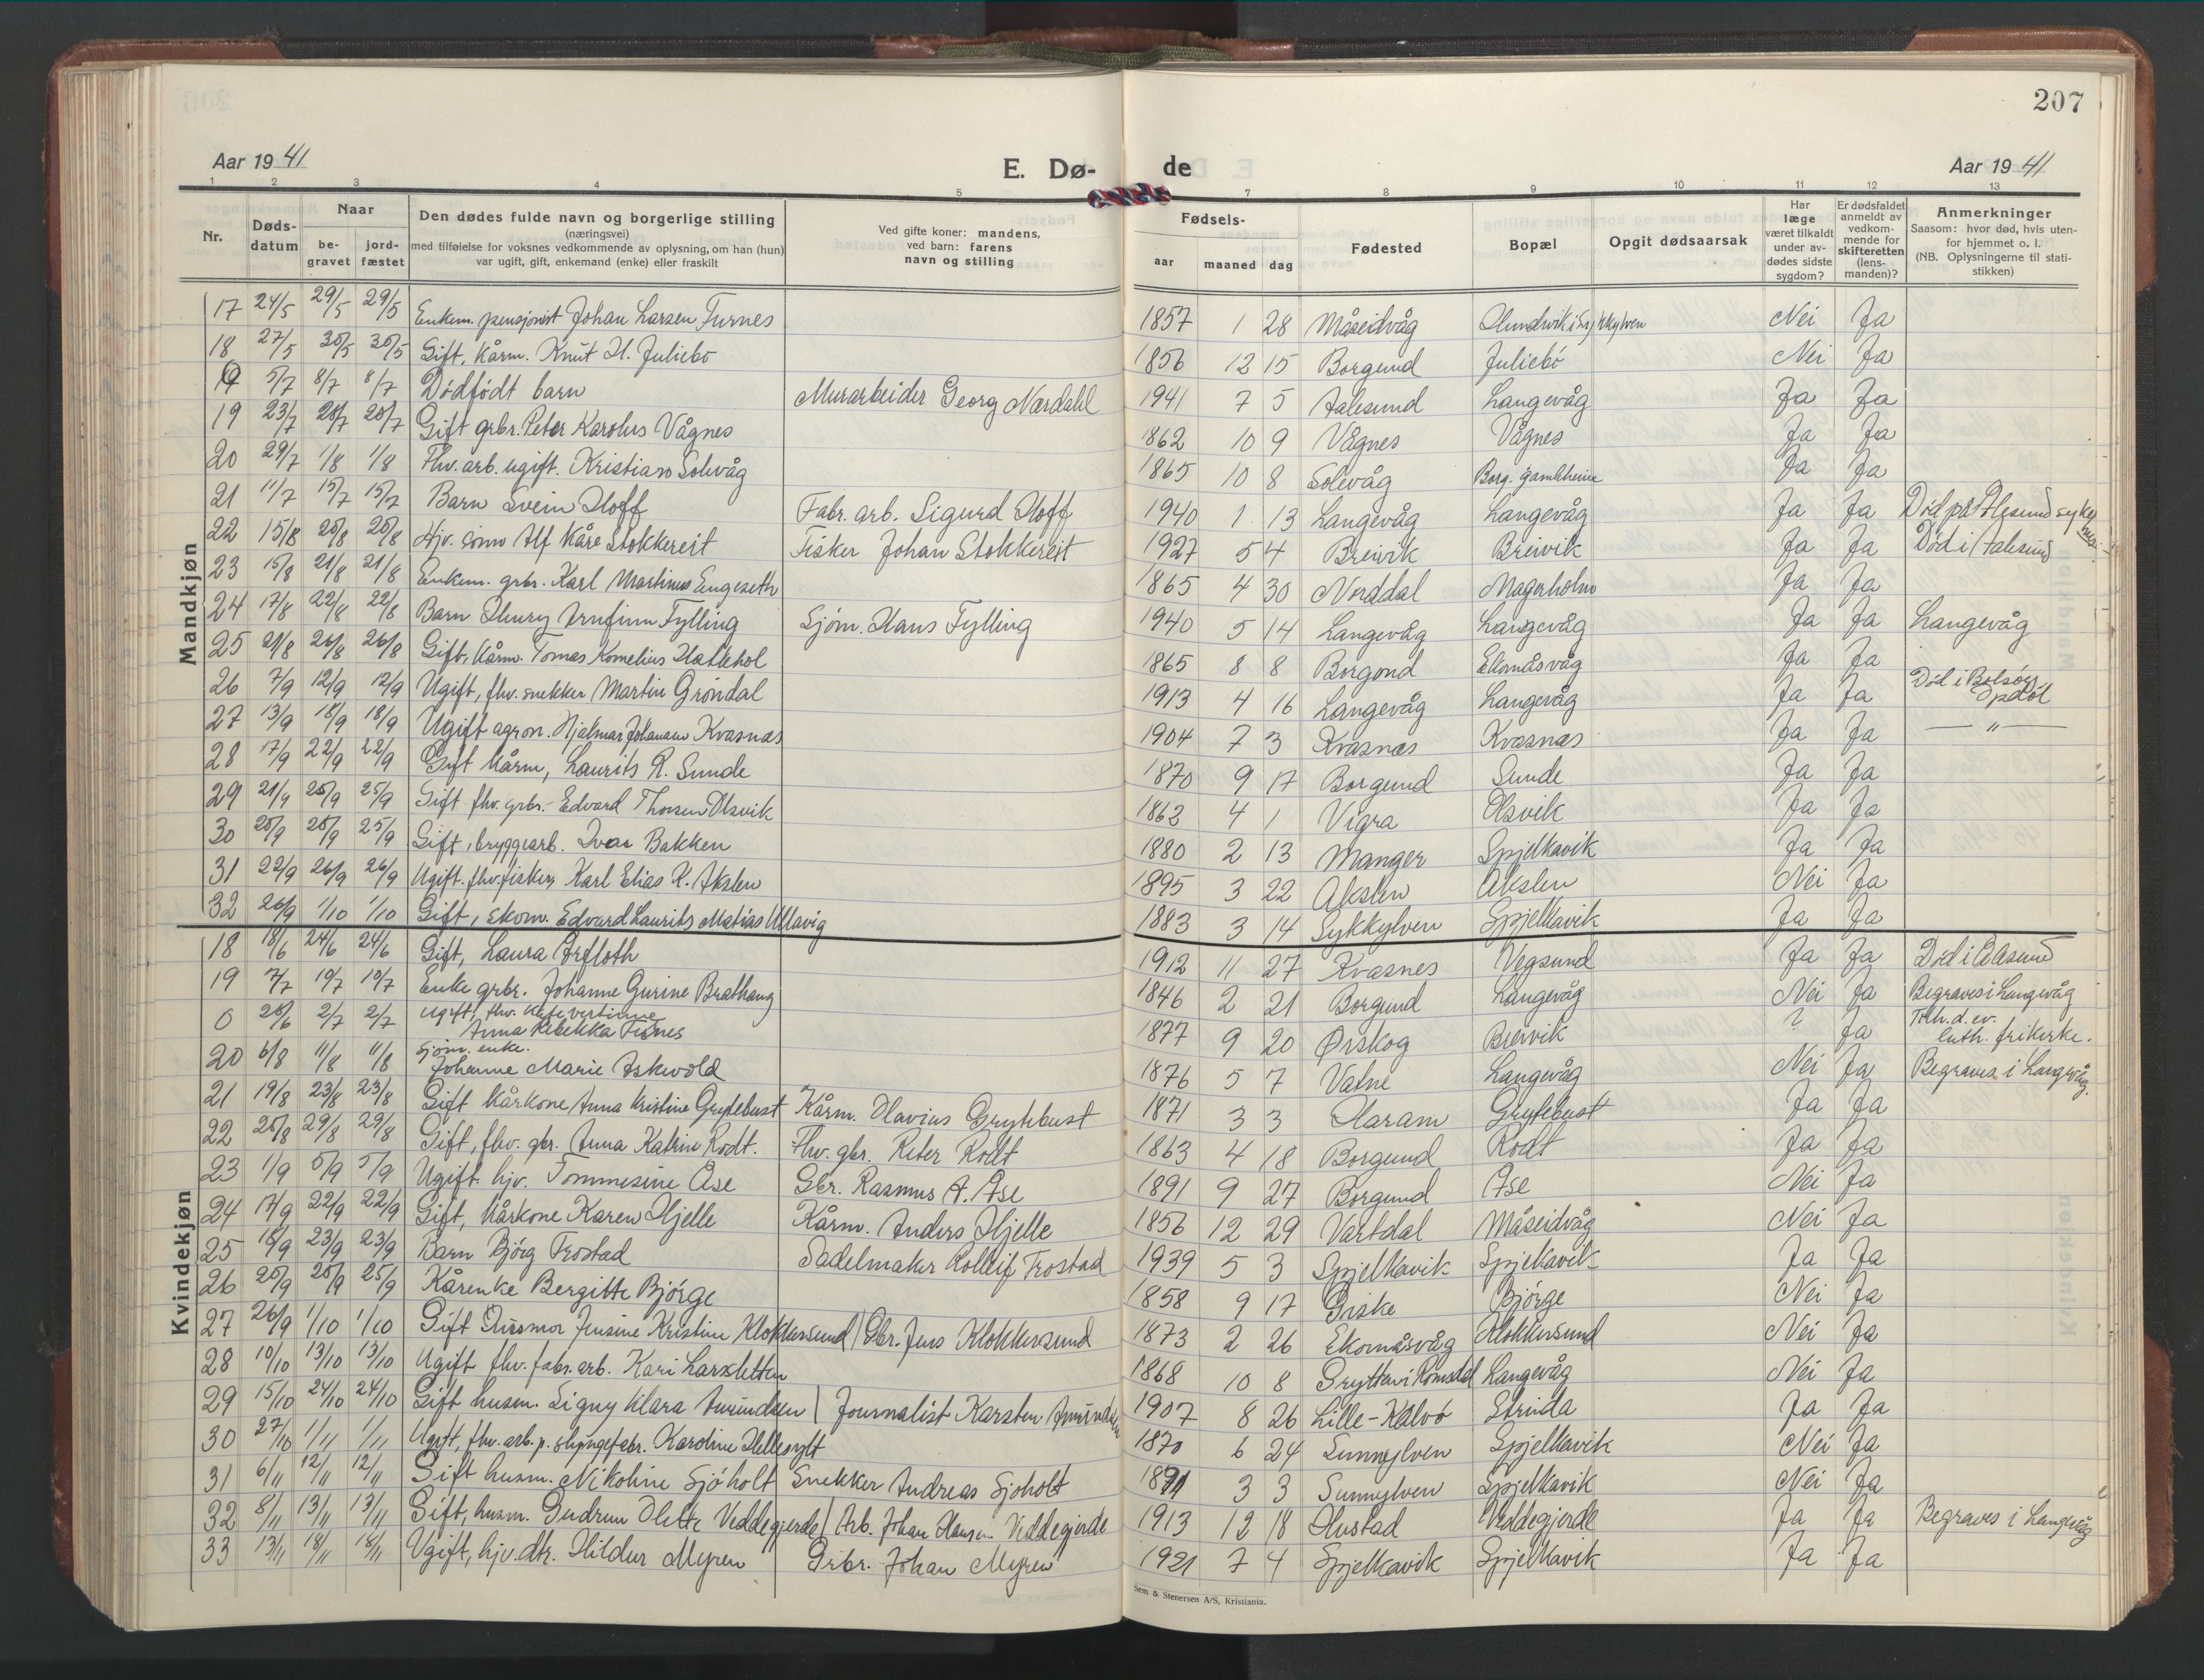 207
Aar 1941 E. Dø- de Aar 1941
1 2 3 4 5 7 8 9 10 11 12 13
Nr. Døds-datum Naar be-gravet jord-fæstet Den dødes fulde navn og borgerlige stilling (næringsvei) med tilføielse for voksnes vedkommende av oplysning, om han (hun) var ugift, gift, enkemand (enke) eller fraskilt Ved gifte koner: mandens, ved barn: farens navn og stilling Fødsels- aar maaned dag Fødested Bopæl Opgit dødsaarsak Har læge været tilkaldt under av-dødes sidste sygdom? Er dødsfaldet anmeldt av vedkom-mende for skifteretten (lens-manden)? Anmerkninger Saasom: hvor død, hvis uten-for hjemmet o. l. (NB. Oplysningerne til stati-stikken)
Mandkjøn
17 24/5 29/5 29/5 Enkem. pensjonist Johan Larsen Furnes 1857 1 28 Måseidvåg Nei Ja
18 27/5 30/5 30/5 Gift, kårm. Knut H. Juliebø 1856 12 15 Borgund Juliebø Nei Ja
5/7 8/7 8/7 Dødfødt barn Murarbeider Georg Nærdahl 1941 7 5 Aalesund Langevåg Ja Ja
19 23/7 28/7 28/7 Gift grbr. Peter Karolus Vågnes 1862 10 9 Vågnes Vågnes Ja Ja
20 29/7 1/8 1/8 Fhv. arb. ugift. Kristian Solevåg 1865 10 8 Solevåg Borg. gamleheim Ja Ja
21 11/7 15/7 15/7 Barn Svein Hoff Fabr. arb. Sigurd Hoff 1940 1 13 Langevåg Langevåg Ja Ja Død på Ålesund sykehus
22 15/8 20/8 20/8 Hjv. sønn Alf Kåre Stokkereit Fisker Johan Stokkereit 1927 5 4 Breivik Breivik Ja Ja Død i Aalesund
23 15/8 21/8 21/8 Enkem. grbr. Karl Martinus Engeseth 1865 4 30 Norddal Magerholm Ja Ja
24 17/8 22/8 22/8 Barn Henry Arnfinn Fylling Sjøm. Hans Fylling 1940 5 14 Langevåg Langevåg Ja Ja Langevåg
25 21/8 26/8 26/8 Gift, kårm. Tomas Kornelius Hattehol 1865 8 8 Borgund Ekornåsvåg Ja Ja
26 7/9 12/9 12/9 Ugift, fhv. snekker Martin Grøndal 1913 4 16 Langevåg Langevåg Ja Ja Død i Bolsøy Opdøl
27 13/9 18/9 18/9 Ugift agron. Hjalmar Johansen Kvasnes 1904 7 3 Kvasnes Kvasnes Ja Ja — " —
28 17/9 22/9 22/9 Gift kårm, Laurits R. Sunde 1870 9 17 Borgund Sunde Ja Ja
29 21/9 25/9 25/9 Gift fhv. grbr. Edvard Thorsen Olsvik 1862 4 1 Vigra Olsvik Ja Ja
30 20/9 25/9 25/9 Gift, bryggearb. Ivar Bakken 1880 2 13 Manger Spjelkavik Ja Ja
31 22/9 26/9 26/9 Ugift. fhv. fisker, Karl Elias K. Akslen 1895 3 22 Akslen Akslen Nei Ja
32 26/9 1/10 1/10 Gift, skom. Edvard Laurits Matias Ullavig 1883 3 14 Sykkylven Spjelkavik Ja Ja
Kvindekjøn
18 18/6 24/6 24/6 Gift, Laura 1912 11 27 Kvasnes Vegsund Ja Ja Død i Ålesund
19 7/7 10/7 10/7 Enke grbr. Johanne Gurine Brathaug 1846 2 21 Borgund Langevåg Nei Ja Begraves i Langevåg
0 28/6 2/7 2/7 Ugift, fhv. kafevertinne Anna Rebekka Fisnes 1877 9 20 Ørskog Breivik ? Ja Tilh. d. ev. luth. frikirke.
20 6/8 11/8 11/8 Sjøm. enke. Johanne Marie Askevold 1876 5 7 Vatne Langevåg Nei Ja Begraves i Langevåg.
21 19/8 23/8 23/8 Gift kårkone Anna Kristine Grytebust Kårm. Olavius Grytebust 1871 3 3 Haram Grytebust Ja Ja
22 25/8 29/8 29/8 Gift, fhv. gbr. Anna Katrine Rødt. Fhv. gbr. Peter Rødt 1863 4 18 Borgund Rødt Ja Ja
23 1/9 5/9 5/9 Ugift. hjv. Tommesine Åse Gbr. Rasmus A. Åse 1891 9 27 Borgund Åse Nei Ja
24 17/9 22/9 22/9 Gift, kårkone Karen Hjelle Kårm. Anders Hjelle 1856 12 29 Vartdal Måseidvåg Nei Ja
25 18/9 23/9 23/9 Barn Bjørg Frostad Sadelmaker Kolleif Frostad 1939 5 3 Spjelkavik Spjelkavik Ja Ja
26 20/9 25/9 25/9 Kårenke Bergitte Bjørge 1858 9 17 Giske Bjørge Nei Ja
27 26/9 1/10 1/10 Gift Jensine Kristine Klokkersund / Gbr. Jens Klokkersund 1873 2 26 Ekornåsvåg Klokkersund Nei Ja
28 10/10 13/10 13/10 Ugift fhv. fabr. arb. Kari Larsletten 1868 10 8 Grytten i Romsdal Langevåg Nei Ja
29 15/10 24/10 24/10 Gift husm. Signy Klara Amundsen / Journalist Karsten Amundsen 1907 8 26 Lille-Kalvø Strinda Ja Ja
30 27/10 1/11 1/11 Ugift, fhv. arb. p. slyngefabr. Karoline Hellesylt 1870 6 24 Sunnylven Spjelkavik Nei Ja
31 6/11 12/11 12/11 Gift husm. Nikoline Sjøholt Snekker Andreas Sjøholt 3 3 Sunnylven Spjelkavik Nei Ja
32 8/11 13/11 13/11 Gift, husm. Gudrun Olette Veddegjerde / Arb. Johan Hansen Veddegjerde 1913 12 18 Hustad Veddegjerde Ja Ja Begraves i Langevåg
33 13/11 18/11 18/11 Ugift, hjv. dtr. Hildur Myren Grbr. Johan Myren 1921 7 4 Spjelkavik Spjelkavik Ja Ja
Sem & Stenersen A/S, Kristiania.